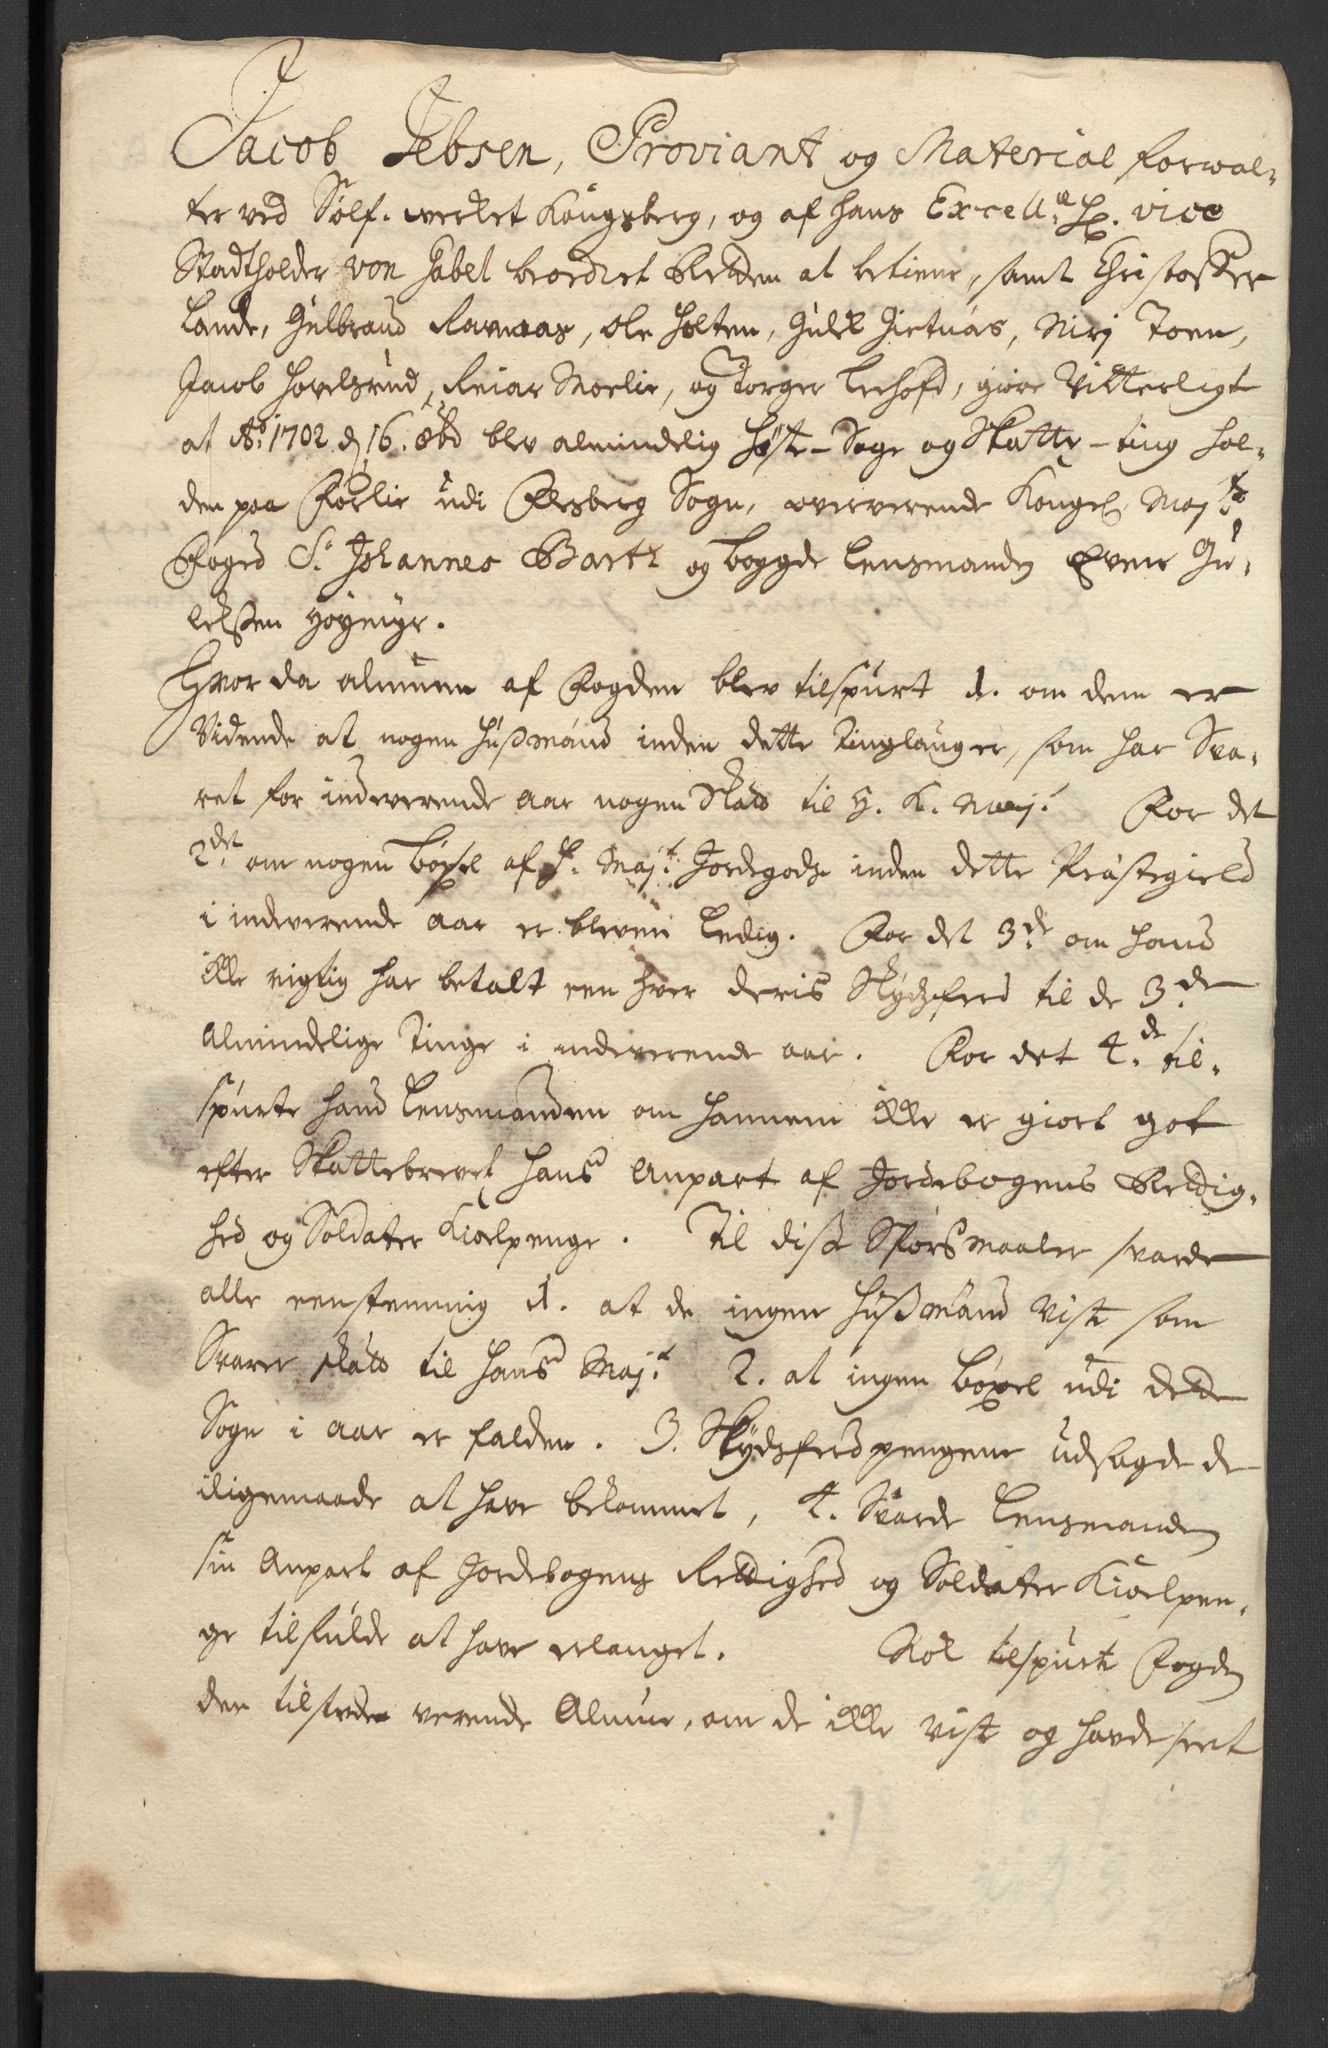 Jacob Jebsen, Proviant og Material forwal-
ter ved Sølf. werket Kongsberg, og af hans Excell. H. vice
Stadtholder von Gabel beordret Retten at betiene, samt Christoffer
Lande, Gulbrand Ravnaas, Ole Holten, Gulk Gietuas, Niri Toen,
Jacob Hovelsrud, Reiar Moelie, og Torger Leehofd, giøre Vitterligt
at Ao. 1702 d. 16. 8bd blev almindelig Høste-Sage og Skatte-ting hol-
den paa Foelie udi Flesberg Sogn, oververende Kongel. Maj.ts
Foged Sr. Johannes Bartz og bøygde Lensmanden Even Gu-
lelssen Høymyr.
Hvor da almuen af Fogden blev tilspurt 1. om dem er
Vidende at nogen Husmænd inden dette Tinglauger, som har Sva-
ret for indeverende aar nogen Skatt til H. K. Maj.t For det
2det om nogen bøxel af H. Maj.t Jordegodz inden dette Præstegield
i indeverende aar er bleven Ledig. For det 3de om hand
ikke rigtig har betalt een hver deris Skydsferd til de 3de
Almindelige Tinge i indeverende aar. For det 4de til-
spurte hand Lensmanden om hannem ikke er giort got
efter Skattebrevet hans Anpart af Jordebogens Rettig-
hed og Soldater Kioelpenge. Til disse Spørsmaaler svarde
alle eenstemmig 1. at de ingen Husmænd Viste som
Svarer skatt til Hans Maj.t 2. at ingen bøxel udi dette
Sogn i aar er falden. 3. Skydsferdpengene udsagde de
iligemaade at have bekommet, 4. Svarde Lensmanden
sin Anpart af Jordebogens Rettighed og Soldater Kioelpen-
ge tilfulde at have erlanget. Nok tilspurte Fogden
den tilstede verende Almue, om de ikke viste og havde seet